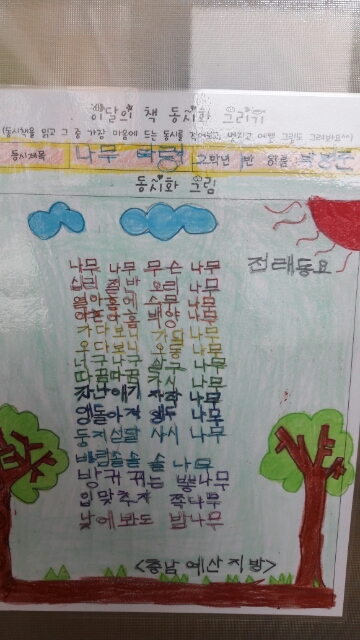 이달의 책 동시화 그리기
(동시책을 읽고 그 중 가장 마음에 드는 동시를 적어보고, 멋지고 예쁜 그림도 그려봐요^^)
동시제목 나무 타령 2학년 1반 이름
동시화 그림
전래동요
나무 나무 무슨 나무
십리 절반 오리 나무
열아홉에 스무 나무
아흔아홉 백양 나무
가다보니 가닥 나무
오다보니 오동 나무
너구 나구 살구 나무
따끔따끔 가시 나무
자난 애기 자작 나무
앵돌아져 앵두 나무
동지섣달 사시 나무
바람솔솔 솔 나무
방귀 뀌는 뽕나무
입 맞추자 쪽나무
낮에 봐도 밤나무
<충남 예산 지방>